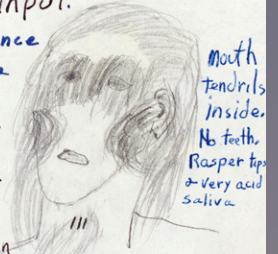 input.
mouth
tendrils
inside.
No teeth.
Rasper tips
& very acid
saliva